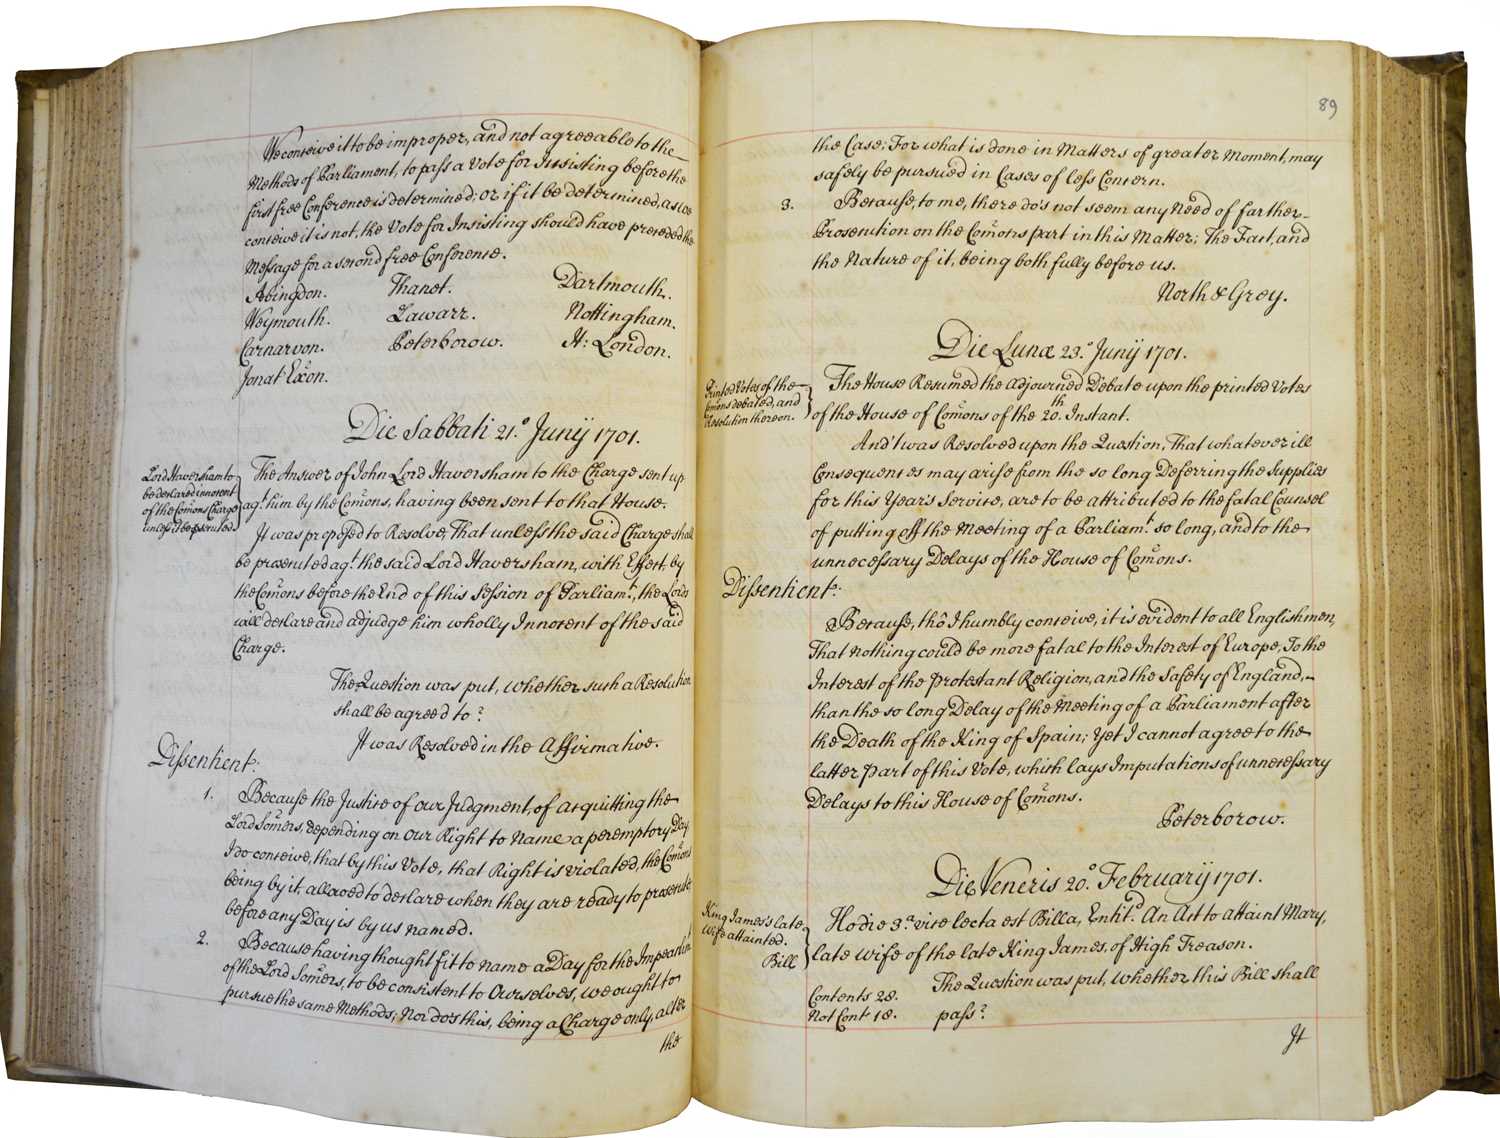 We conceive it to be improper, and not agreeable to the
Methods of Parliament, to pass a Vote for Insisting before the
first free Conference is determined; or if it be determined, as we
conceive it is not, the Vote for Insisting should have preceded the
Message for a second free Conference.
Abingdon. Thanet. Dartmouth.
Weymouth. Lawarr. Nottingham.
Carnarvon. Peterborow. H: London.
Jonat Exon.
Die Sabbati 21.o Junij 1701.
Lord Haversham to
be declared innocent
of the Comons Charge
unless it be psecuted.
The Answer of John Lord Haversham to the Charge sent up
agt. him by the Comons, having been sent to that House.
It was proposed to Resolve, That unless the said Charge shall
be prosecuted agt. the said Lord Haversham, with Effect by
the Comons before the End of this Session of Parliamt., the Lords
will declare and adjudge him wholly Innocent of the said
Charge.
The Question was put, whether such a Resolution
shall be agreed to?
It was Resolved in the Affirmative.
Dissentient:
1. Because the Justice of our Judgment, of acquitting the
Lord Somers, depending on our Right to Name a peremptory Day,
I do conceive, that by this Vote, that Right is violated, the Comons
being by it, allowed to declare when they are ready to prosecute
before any Day is by us named.
2. Because having thought fit to name a Day for the Impeachmt
of the Lord Somers, to be consistent to Ourselves, we ought to
pursue the same Methods; Nor do's this, being a Charge only, alter
the
89
the Case; For what is done in Matters of greater Moment, may
safely be pursued in Cases of less Concern.
3. Because, to me, there do's not seem any Need of farther
Prosecution on the Comons part in this Matter; The Fact, and
the Nature of it, being both fully before us.
North & Grey.
Die Lunæ 23.o Junij 1701.
Printed Votes of the
Comons debated, and
Resolution thereon.
The House Resumed the Adjourned Debate upon the printed Votes
of the House of Comons of the 20.th Instant.
And 't was Resolved upon the Question, That whatever ill
Consequences may arise from the so long Deferring the Supplies
for this Year's Service, are to be attributed to the fatal Counsel
of putting off the Meeting of a Parliamt. so long, and to the
unnecessary Delays of the House of Comons.
Dissentient:
Because, tho' I humbly conceive, it is evident to all Englishmen,
That Nothing could be more fatal to the Interest of Europe, To the
Interest of the Protestant Religion, and the Safety of England,
than the so long Delay of the Meeting of a Parliament after
the Death of the King of Spain; Yet I cannot agree to the
latter Part of this Vote, which lays Imputations of unnecessary
Delays to this House of Comons.
Peterborow.
Die Veneris 20.o February 1701.
King James's late
Wife attainted.
Bill
Hodie 3.a vice lecta est Billa, Entitd. An Act to attaint Mary,
late Wife of the late King James, of High Treason.
The Question was put, whether this Bill shall
pass?
Contents 28.
Not Cont 18.
It